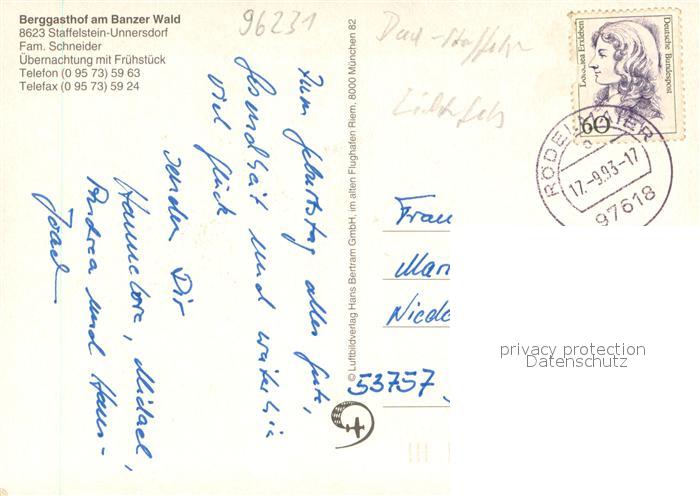 Berggasthof am Banzer Wald
8623 Staffelstein-Unnersdorf
Fam. Schneider
Übernachtung mit Frühstück
Telefon (0 95 73) 59 63
Telefax (0 95 73) 59 24
96231
Zum Geburtstag alles Gute,
Gesundheit und weiterhin
viel Glück
senden Dir
Hannelore, Michael,
Andrea und Hans-
© Luftbildverlag Hans Bertram GmbH, im alten Flughafen Riem, 8000 München 82
Bad-Staffelst
Lichtenfels
Dorothea Erxleben
Deutsche Bundespost
60
RÖDELMAIER
17.-9.93-17
97618
Frau
Mar
Nied
53757
privacy protection
Datenschutz